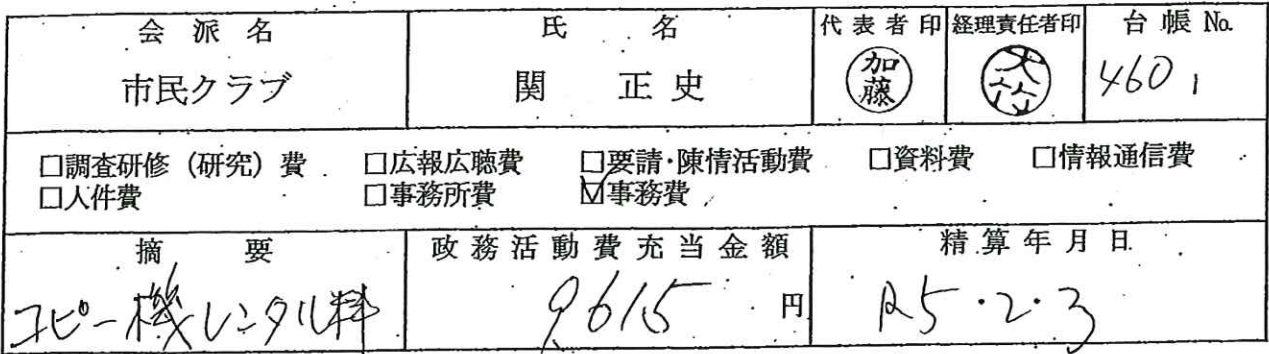 会派名 氏名 代表者印 経理責任者印 台帳No.
市民クラブ 関 正史 加藤 大竹 460 1
□調査研修(研究)費 □広報広聴費 □要請・陳情活動費 □資料費 □情報通信費
□人件費 □事務所費 ☑事務費
摘要 政務活動費充当金額 精算年月日
コピー機レンタル料 9615円 R5・2・3